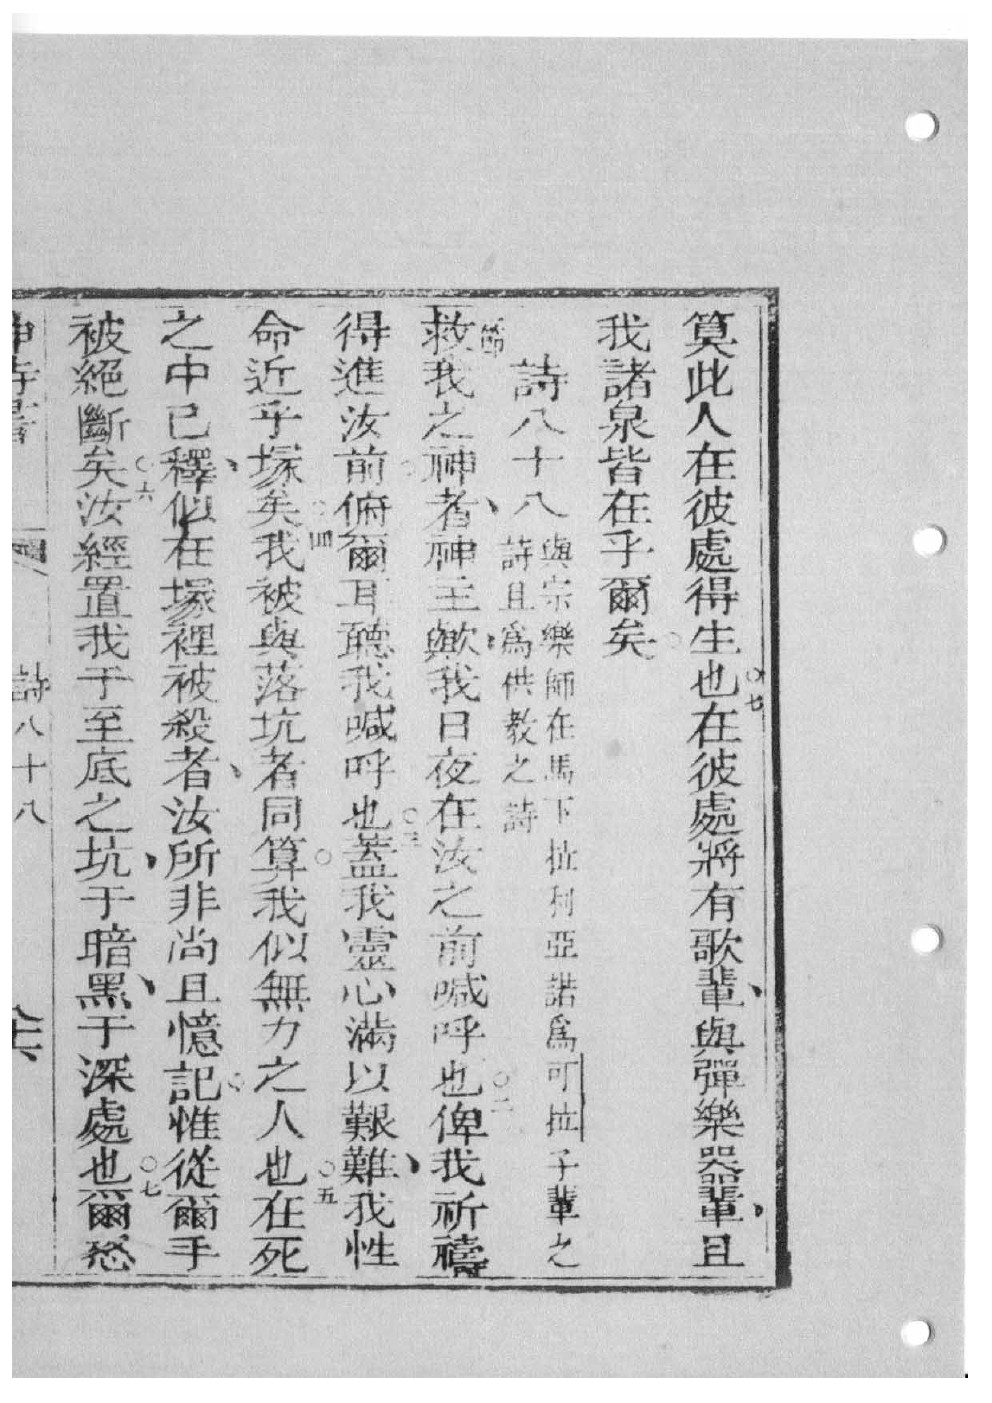 算此人在彼處得生也○七在彼處將有歌輩與彈樂器輩且
我諸泉皆在乎爾矣○
詩八十八
與宗樂師在馬下拉利亞諾爲可拉子輩之
詩且爲供教之詩
節
救我之神者神主歟我日夜在汝之前喊呼也○二俾我祈禱
得進汝前俯爾耳聽我喊呼也○三蓋我靈心滿以艱難我性
命近乎塚矣○四我被與落坑者同算○我似無力之人也○五在死
之中已釋似在塚裡被殺者汝所非尚且憶記○惟從爾手
被絕斷矣○六汝經置我于至底之坑于暗黑于深處也○七爾怒
詩八十八